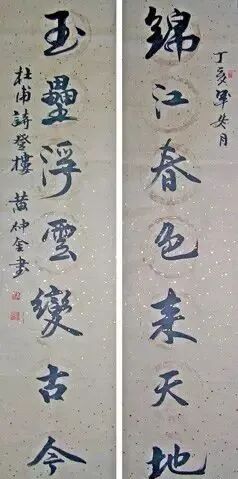 丁亥年冬月
錦江春色来天地
玉壘浮雲變古今
杜甫詩登樓 黄仲金書